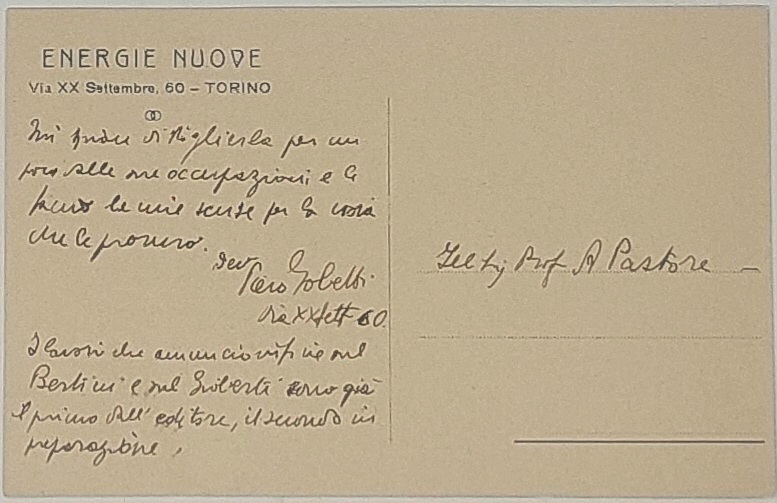 ENERGIE NUOVE
Via XX Settembre, 60 – TORINO
Mi spiace di toglierla per un
poco alle sue occupazioni e le
faccio le mie scuse per la noia
che le procuro.
Dev
Piero Gobetti
Via XX Sett 60.
I lavori che annunciavo sul
Bertini e sul Gioberti sono già
il primo dall'editore, il secondo in
preparazione.
Prof A Pastore –